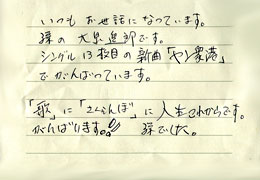 いつもお世話になっています。
孫の大泉逸郎です。
シングル13枚目の新曲「やん衆港」
でがんばっています。
「歌」に「さくらんぼ」に人生これからです。
がんばります。 孫でした。